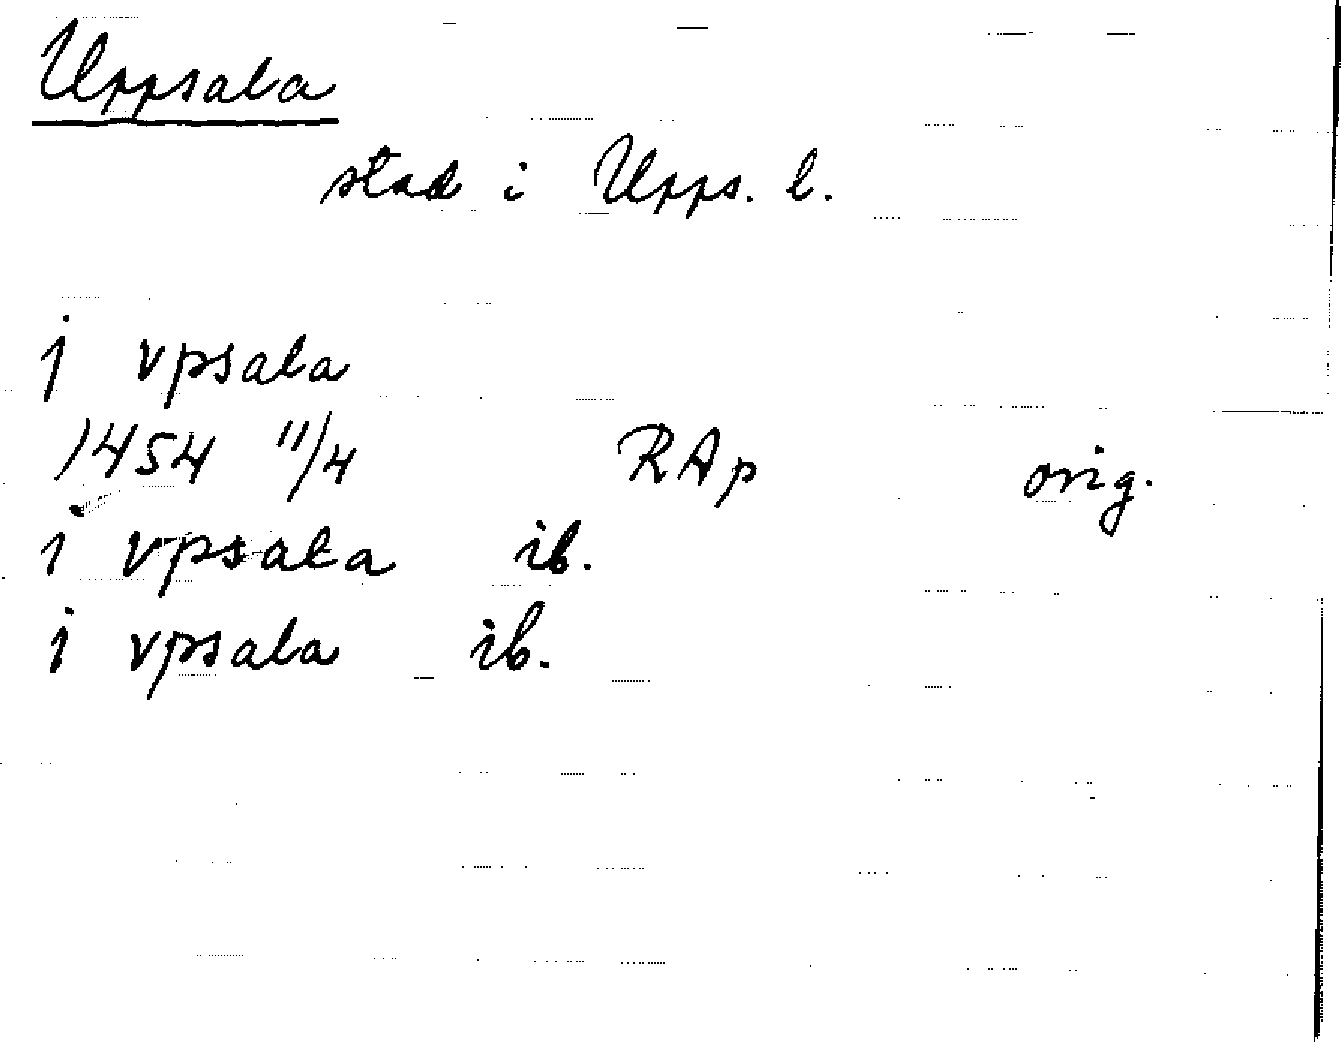 Uppsala
stad i Upps. l.
j vpsala
1454 11/4 RAp orig.
i vpsala ib.
j vpsala ib.